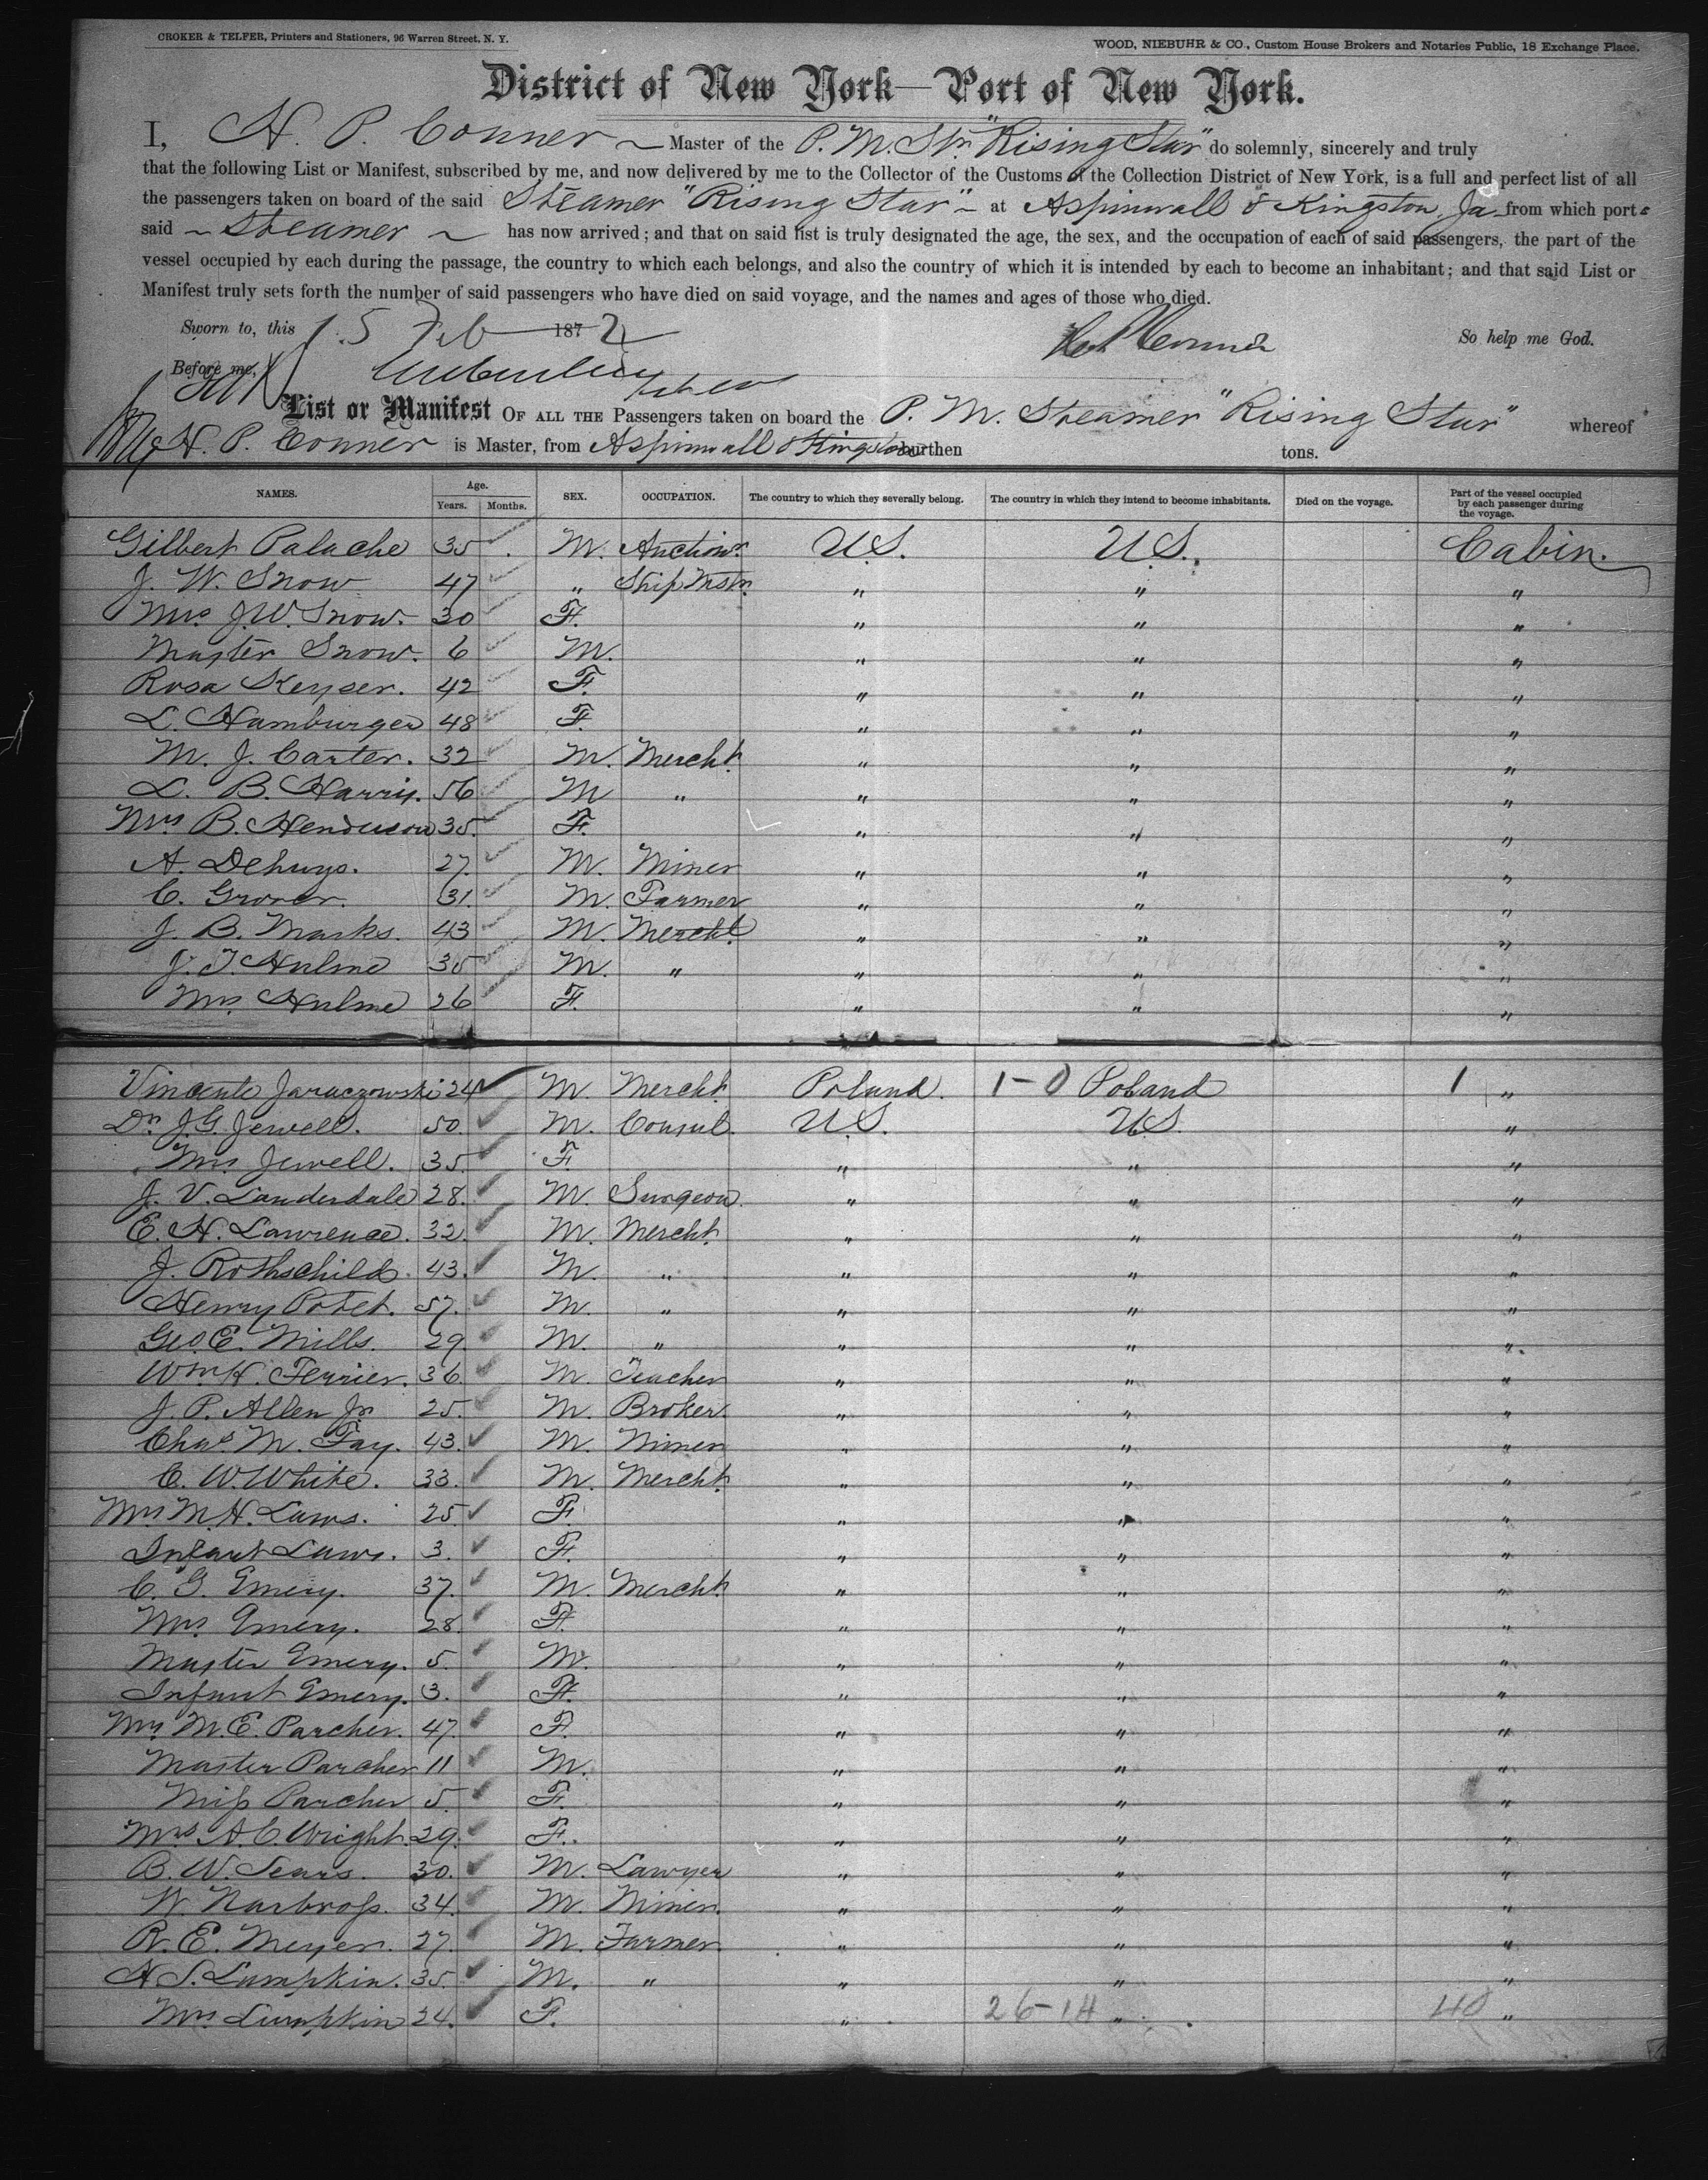 CROKER & TELFER, Printers and Stationers, 96 Warren Street, N. Y.
WOOD, NIEBUHR & CO., Custom House Brokers and Notaries Public, 18 Exchange Place.
District of New York—Port of New York.
I, H. P. Conner Master of the P. M. Str. "Rising Star" do solemnly, sincerely and truly
that the following List or Manifest, subscribed by me, and now delivered by me to the Collector of the Customs of the Collection District of New York, is a full and perfect list of all
the passengers taken on board of the said Steamer "Rising Star" at Aspinwall & Kingston, Ja from which port s
said Steamer has now arrived; and that on said list is truly designated the age, the sex, and the occupation of each of said passengers, the part of the
vessel occupied by each during the passage, the country to which each belongs, and also the country of which it is intended by each to become an inhabitant; and that said List or
Manifest truly sets forth the number of said passengers who have died on said voyage, and the names and ages of those who died.
Sworn to, this 15 Feb 1872 So help me God.
Before me, Conner
List or Manifest OF ALL THE Passengers taken on board the P. M. Steamer "Rising Star" whereof
H. P. Conner is Master, from Aspinwall & Kingston burthen tons.
NAMES. Age. Years. Months. SEX. OCCUPATION. The country to which they severally belong. The country in which they intend to become inhabitants. Died on the voyage. Part of the vessel occupied by each passenger during the voyage.
Gilbert Palache 35 M. Auctionr. U.S. U.S. Cabin.
J. W. Snow 47 " Ship Mstr. " " "
Mrs J. W. Snow. 30 F. " " "
Master Snow. 6 M. " " "
Rosa Keyser. 42 F. " " "
L. Hamburger 48 F. " " "
M. J. Carter. 32 M. Mercht. " " "
L. B. Harris. 56 M " " " "
Mrs B. Henderson 35. F. " " "
A. 27. M. Miner " " "
C. Grover. 31. M. Farmer " " "
J. B. Marks. 43 M. Mercht. " " "
J. T. Hulme 35 M. " " " "
Mrs. Hulme 26 F. " " "
Vincente Jaraczowski 24 M. Mercht. Poland. 1-0 Poland 1 "
Dr. J. G. Jewell. 50. M. Consul. U.S. U.S. "
Mrs Jewell. 35. F " " "
J. V. Lauderdale 28. M. Surgeon. " " "
E. H. Lawrence. 32. M. Mercht. " " "
J. Rothschild. 43. M. " " " "
Henry Potet. 57. M. " " " "
Geo. E. Mills. 29. M. " " " "
Wm. H. Ferrier. 36. M. Teacher " " "
J. P. Allen Jr 25. M. Broker. " " "
Chas. M. Fay. 43. M. Miner " " "
C. W. White. 33. M. Mercht. " " "
Mrs M. H. Laws. 25. F. " " "
Infant Laws. 3. F. " " "
C. G. Emery. 37. M. Mercht. " " "
Mrs. Emery. 28. F. " " "
Master Emery. 5. M. " " "
Infant Emery. 3. F. " " "
Mrs M. E. Parcher. 47. F. " " "
Master Parcher 11 M. " " "
Miss Parcher 5. F. " " "
Mrs A. C. Wright. 29. F. " " "
B. W. Sears. 30. M. Lawyer " " "
W. Narbross. 34. M. Miner. " " "
R. E. Meyer. 27. M. Farmer. " " "
H. S. Lumpkin. 35. M. " " " "
Mrs. Lumpkin 24. F. " 26-14 " 40 "